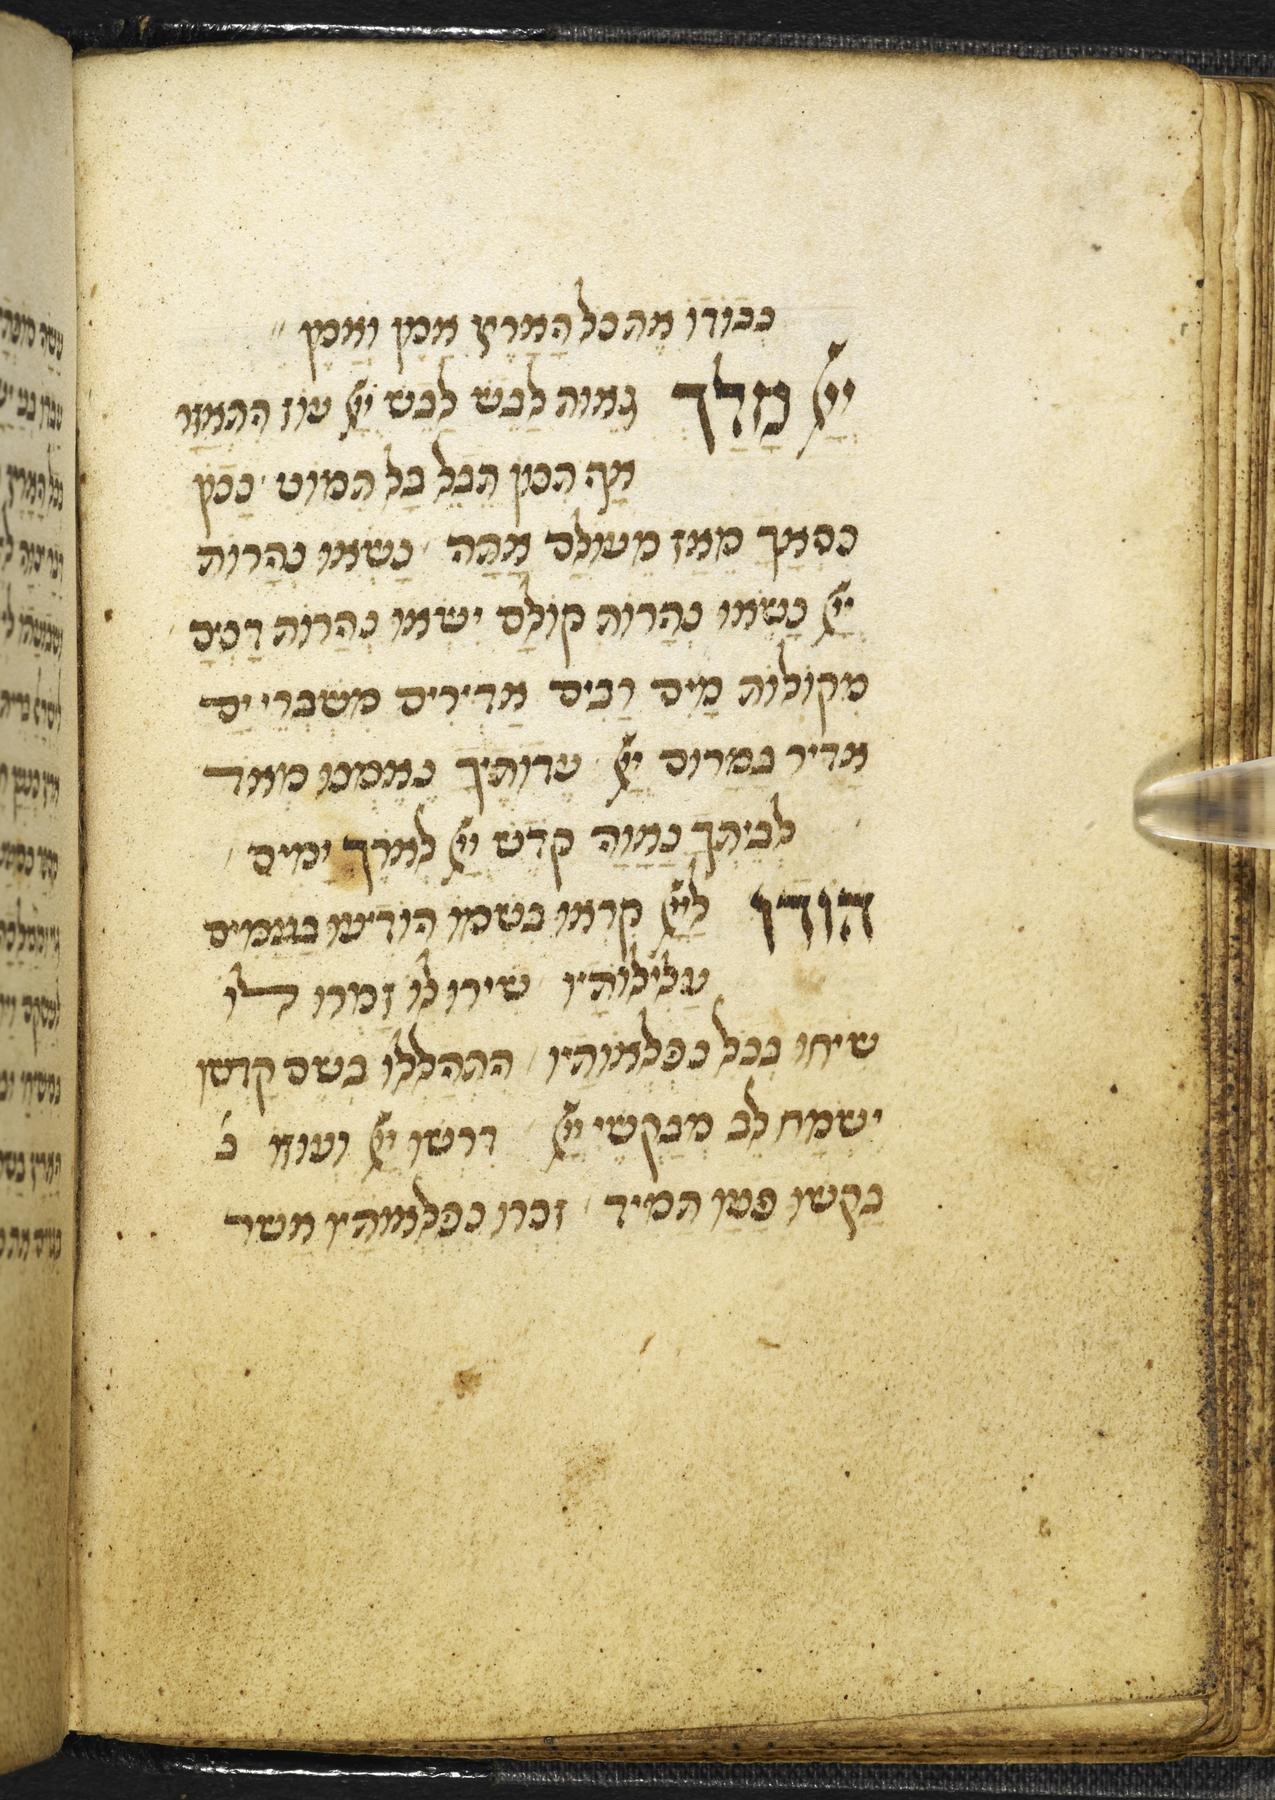 כבודו את כל הארץ אמן ואמן
ייי מלך גאות לבש לבש ייי עוז התאזר
אף תכון תבל בל תמוט נכון
כסאך מאז מעולם אתה נשאו נהרות
ייי נשאו נהרות קולם ישאו נהרות דכים
מקולות מים רבים אדירים משברי ים
אדיר במרום ייי עדותיך נאמנו מאד
לביתך נאוה קדש ייי לאורך ימים
הודו לייי קראו בשמו הודיעו בגוים
עלילותיו שירו לו זמרו לו
שיחו בכל נפלאותיו התהללו בשם קדשו
ישמח לב מבקשי ייי דרשו ייי ועוזו ב
בקשו פניו תמיד זכרו נפלאותיו אשר